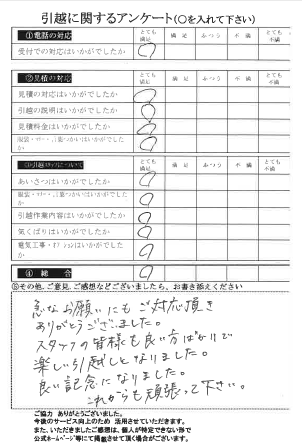 引越に関するアンケート(○を入れて下さい)
①電話の対応 とても満足 満足 ふつう 不満 とても不満
受付での対応はいかがでしたか ○
②見積の対応 とても満足 満足 ふつう 不満 とても不満
見積の対応はいかがでしたか ○
引越の説明はいかがでしたか ○
見積料金はいかがでしたか ○
服装・マナー・言葉づかいはいかがでしたか ○
③引越スタッフについて とても満足 満足 ふつう 不満 とても不満
あいさつはいかがでしたか ○
服装・マナー・言葉づかいはいかがでしたか ○
引越作業内容はいかがでしたか ○
気くばりはいかがでしたか ○
電気工事・オプションはいかがでしたか ○
④総合 ○
⑤その他、ご意見、ご感想などございましたら、お書き添えください
急なお願いにもご対応頂き
ありがとうございました。
スタッフの皆様も良い方ばかりで
楽しい引越しとなりました。
良い記念になりました。
これからも頑張って下さい。
ご協力 ありがとうございました。
今後のサービス向上のため 活用させていただきます。
また、いただきましたご感想は、個人が特定できない形で
公式ホームページ等にて掲載させて頂く場合がございます。